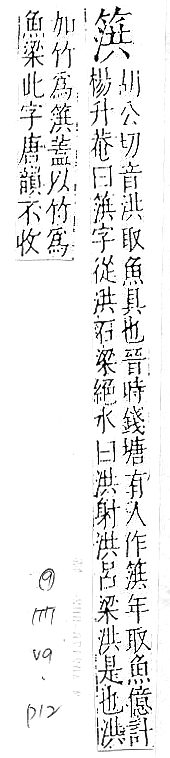 篊
胡公切音洪取魚具也晉時錢塘有人作篊年取魚億計
楊升菴曰篊字從洪石梁絕水曰洪射洪呂梁洪是也洪
加竹爲篊蓋以竹爲
魚梁此字唐韻不收
v9.
p12